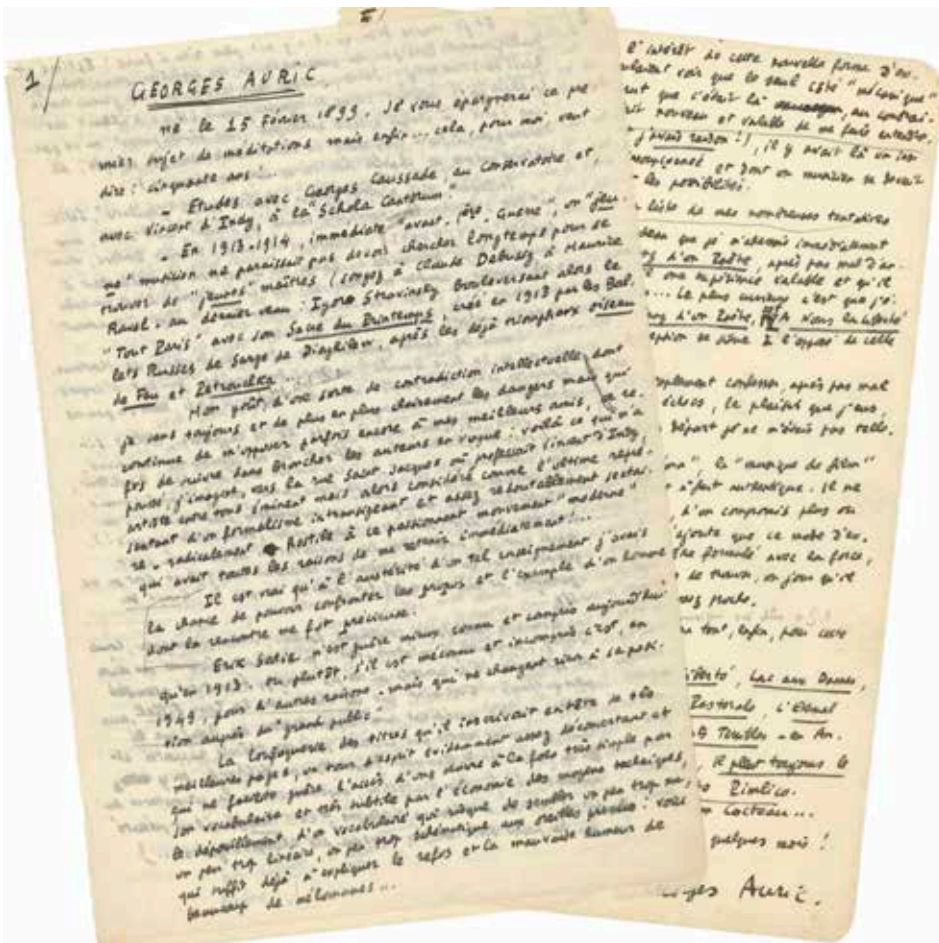 1/
GEORGES AURIC
né le 15 Février 1899. Je vous épargnerai ce pre
mier sujet de méditations mais enfin... cela, pour moi, veut
dire : cinquante ans !...
- Etudes avec Georges Caussade au Conservatoire et,
avec Vincent d'Indy, à la "Schola Cantorum".
- En 1913-1914, immédiate "avant-1ère-Guerre", un "jeu-
ne" musicien ne paraissait pas devoir chercher longtemps pour se
trouver de "jeunes" maîtres (songez à Claude Debussy, à Maurice
Ravel - au dernier venu : Igor Stravinsky bouleversant alors le
"Tout Paris" avec son Sacre du Printemps, créé en 1913 par les Bal-
lets Russes de Serge de Diaghilew, après les déjà triomphaux Oiseau
de Feu et Petrouchka...
Mon goût, d'une sorte de contradiction intellectuelle dont
je sens toujours et de plus en plus clairement les dangers mais qui
continue de m'opposer parfois encore à mes meilleurs amis, ce re-
fus de suivre sans broncher les auteurs en vogue : voilà ce qui m'a
poussé, j'imagine, vers la rue Saint Jacques où professait Vincent d'Indy,
artiste entre tous éminent mais alors considéré comme l'ultime repré-
sentant d'un formalisme intransigeant et assez redoutablement sectai-
re - radicalement hostile à ce passionnant mouvement "moderne"
qui avait toutes les raisons de me retenir immédiatement !...
Il est vrai qu'à l'austérité d'un tel enseignement j'avais
la chance de pouvoir confronter les propos et l'exemple d'un homme
dont la rencontre me fut précieuse.
Erik Satie n'est guère mieux connu et compris aujourd'hui
qu'en 1913. Ou plutôt, s'il est méconnu et incompris c'est, en
1949, pour d'autres raisons - mais qui ne changent rien à sa posi-
tion auprès du "grand public".
La loufoquerie des titres qu'il inscrivait en tête de ses
meilleures pages, un tour d'esprit évidemment assez déconcertant et
qui ne facilite guère l'accès d'une œuvre à la fois très simple par
son vocabulaire et très subtile par l'économie des moyens techniques,
le dépouillement d'un vocabulaire qui risque de sembler un peu trop nu,
un peu trop linéaire, un peu trop schématique aux oreilles : voilà
qui suffit déjà à expliquer le refus et la mauvaise humeur de
beaucoup de mélomanes...
l'intérêt de cette nouvelle forme d'ex-
voir que le seul côté "mécanique"
que c'était là, au contrai-
nouveau et valable de me faire entendre,
j'avais raison !), il y avait là un
et dont un musicien se devait
les possibilités.
liste de mes nombreuses tentatives
que je m'adressai immédiatement
d'un Poète, après pas mal d'ar-
une expérience valable et qu'il
... Le plus curieux c'est que j'é-
d'un Poète, A Nous la Liberté
se situe à l'opposé de celle
simplement confesser, après pas mal
échecs, le plaisir que j'eus,
départ je ne m'étais pas tellement
la "musique de film"
à fait authentique. Il ne
d'un compromis plus ou
ajoute que ce mode d'ex-
formulé avec la force,
de travers, un jour qu'il
tout, enfin, pour cette
Liberté, Lac aux Dames,
Pastorale, L'Eternel
Terribles - en An-
il pleut toujours le
Pimlico.
Cocteau...
quelques mois !
Georges Auric.